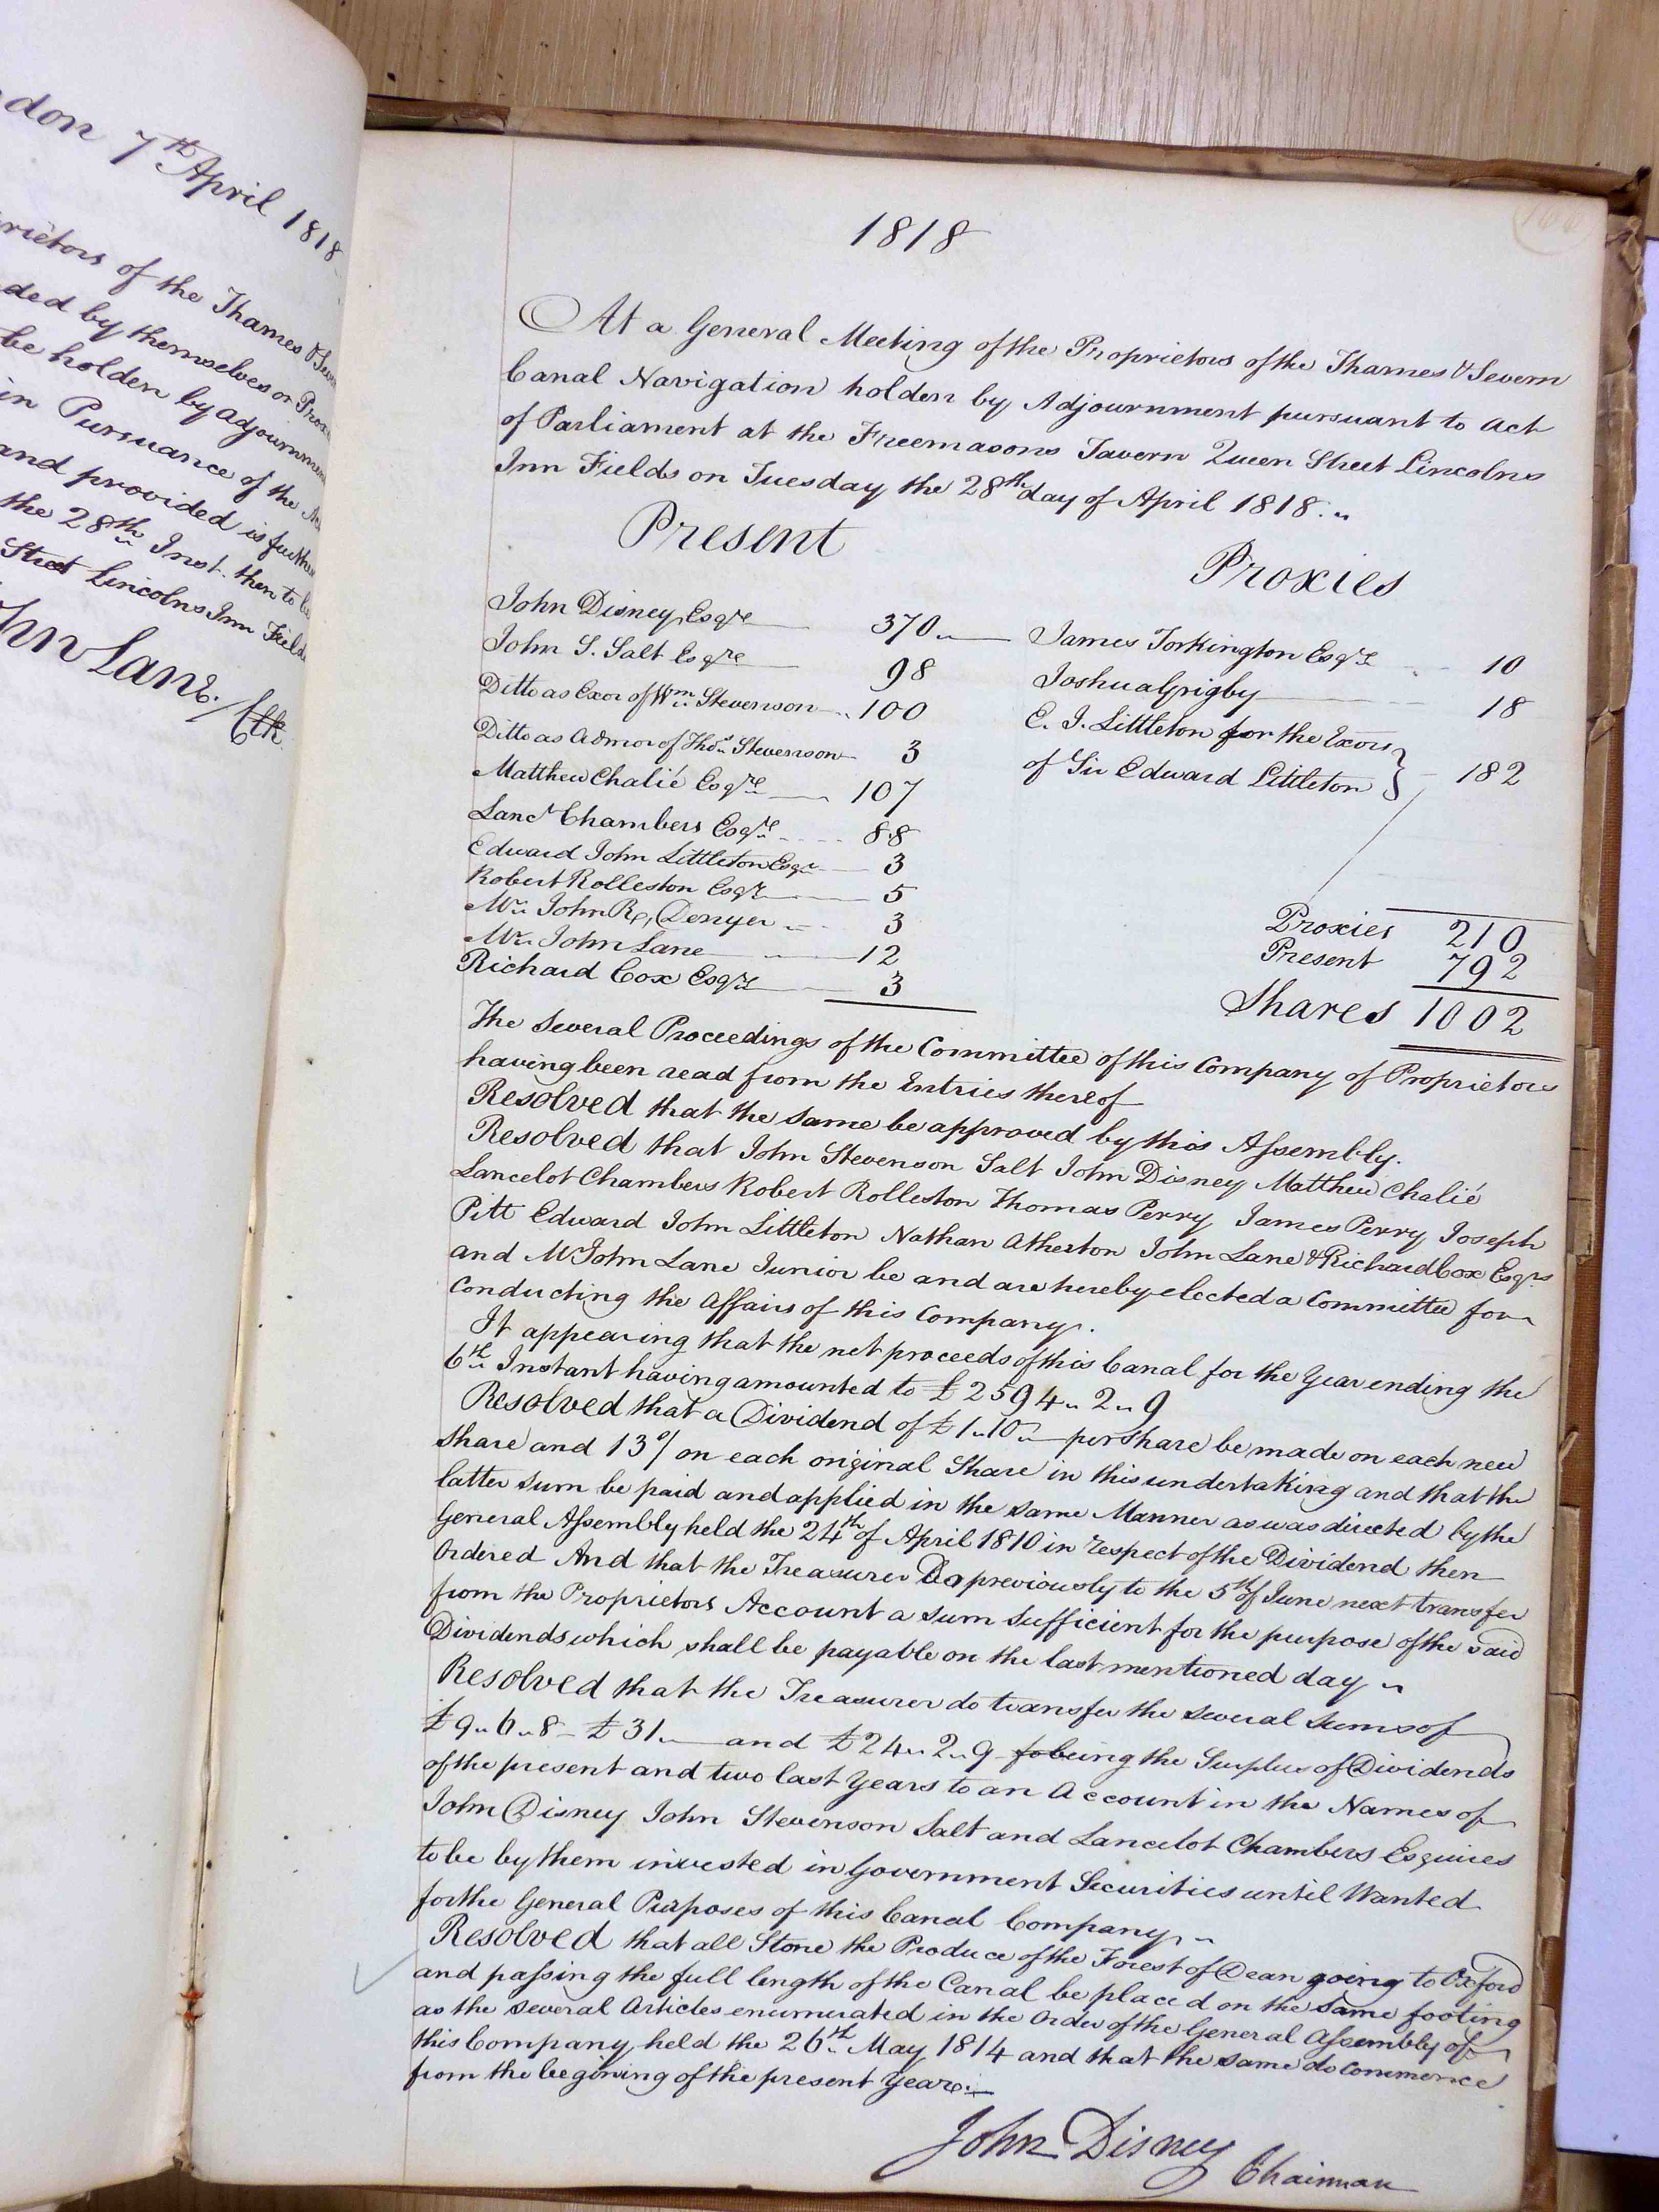 don 7th April 1818
rietors of the Thames & Seve
ded by themselves or Prox
be holden by adjournmen
in Pursuance of the
and provided is further
the 28th Inst. then to be
Street Lincolns Inn Field
hn Lane. Clk
1818
At a General Meeting of the Proprietors of the Thames & Severn
Canal Navigation holden by Adjournment pursuant to Act
of Parliament at the Freemasons Tavern Queen Street Lincolns
Inn Fields on Tuesday the 28th day of April 1818.
Present
John Disney Esqre 370
John S. Salt Esqre 98
Ditto as Exor of Wm Stevenson 100
Ditto as Admor of Thos Stevenson 3
Matthew Chalié Esqre 107
Lanct Chambers Esqre 88
Edward John Littleton Esqr 3
Robert Rolleston Esqr 5
Mr John R. Denyer 3
Mr John Lane 12
Richard Cox Esqr 3
Proxies
James Torkington Esqr 10
Joshua Grigby 18
E. J. Littleton for the Exors
of Sir Edward Littleton } 182
Proxies 210
Present 792
Shares 1002
The several Proceedings of the Committee of this Company of Proprietors
having been read from the Entries thereof
Resolved that the same be approved by this Assembly.
Resolved that John Stevenson Salt John Disney Matthew Chalié
Lancelot Chambers Robert Rolleston Thomas Perry James Perry Joseph
Pitt Edward John Littleton Nathan Atherton John Lane & Richard Cox Esqrs
and Mr John Lane Junior be and are hereby elected a Committee for
Conducting the Affairs of this Company.
It appearing that the net proceeds of this Canal for the Year ending the
6th Instant having amounted to £2594 " 2 " 9
Resolved that a Dividend of £1 " 10 " — per Share be made on each new
share and 13/ on each original Share in this undertaking and that the
latter sum be paid and applied in the same Manner as was directed by the
General Assembly held the 24th of April 1810 in respect of the Dividend then
Ordered And that the Treasurer Do previously to the 5th of June next transfer
from the Proprietors Account a sum Sufficient for the purpose of the said
Dividends which shall be payable on the last mentioned day "
Resolved that the Treasurer do transfer the several sums of
£9 " 6 " 8 - £31 " — and £24 " 2 " 9 being the Surplus of Dividends
of the present and two last Years to an Account in the Names of
John Disney John Stevenson Salt and Lancelot Chambers Esquires
to be by them invested in Government Securities until Wanted
for the General Purposes of this Canal Company "
Resolved that all Stone the Produce of the Forest of Dean going to Oxford
and passing the full length of the Canal be placed on the same footing
as the several Articles enumerated in the Order of the General Assembly of
this Company held the 26th May 1814 and that the same do commence
from the begining of the present Year.
John Disney
Chairman